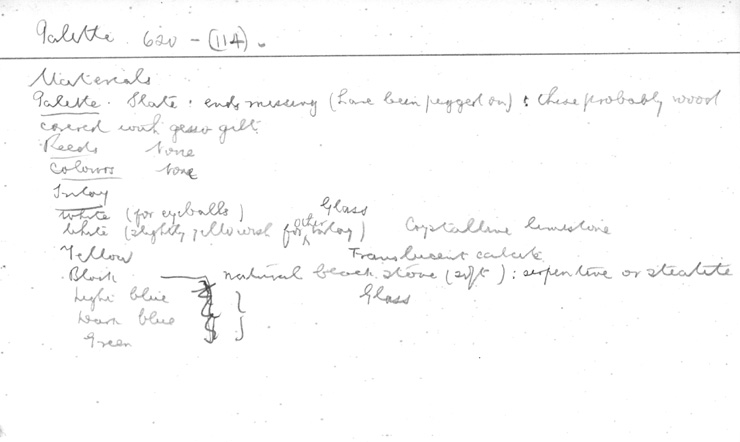 Palette 620 - (114).
Materials
Palette. Slate: ends missing (have been pegged on): these probably wood
covered with gesso gilt.
Reeds None
Colours None
Inlay
White (for eyeballs) Glass
White (slightly yellowish for other inlay) Crystalline limestone
Yellow Translucent calcite
Black natural black stone (soft): serpentine or steatite
Light blue } Glass
Dark blue }
Green